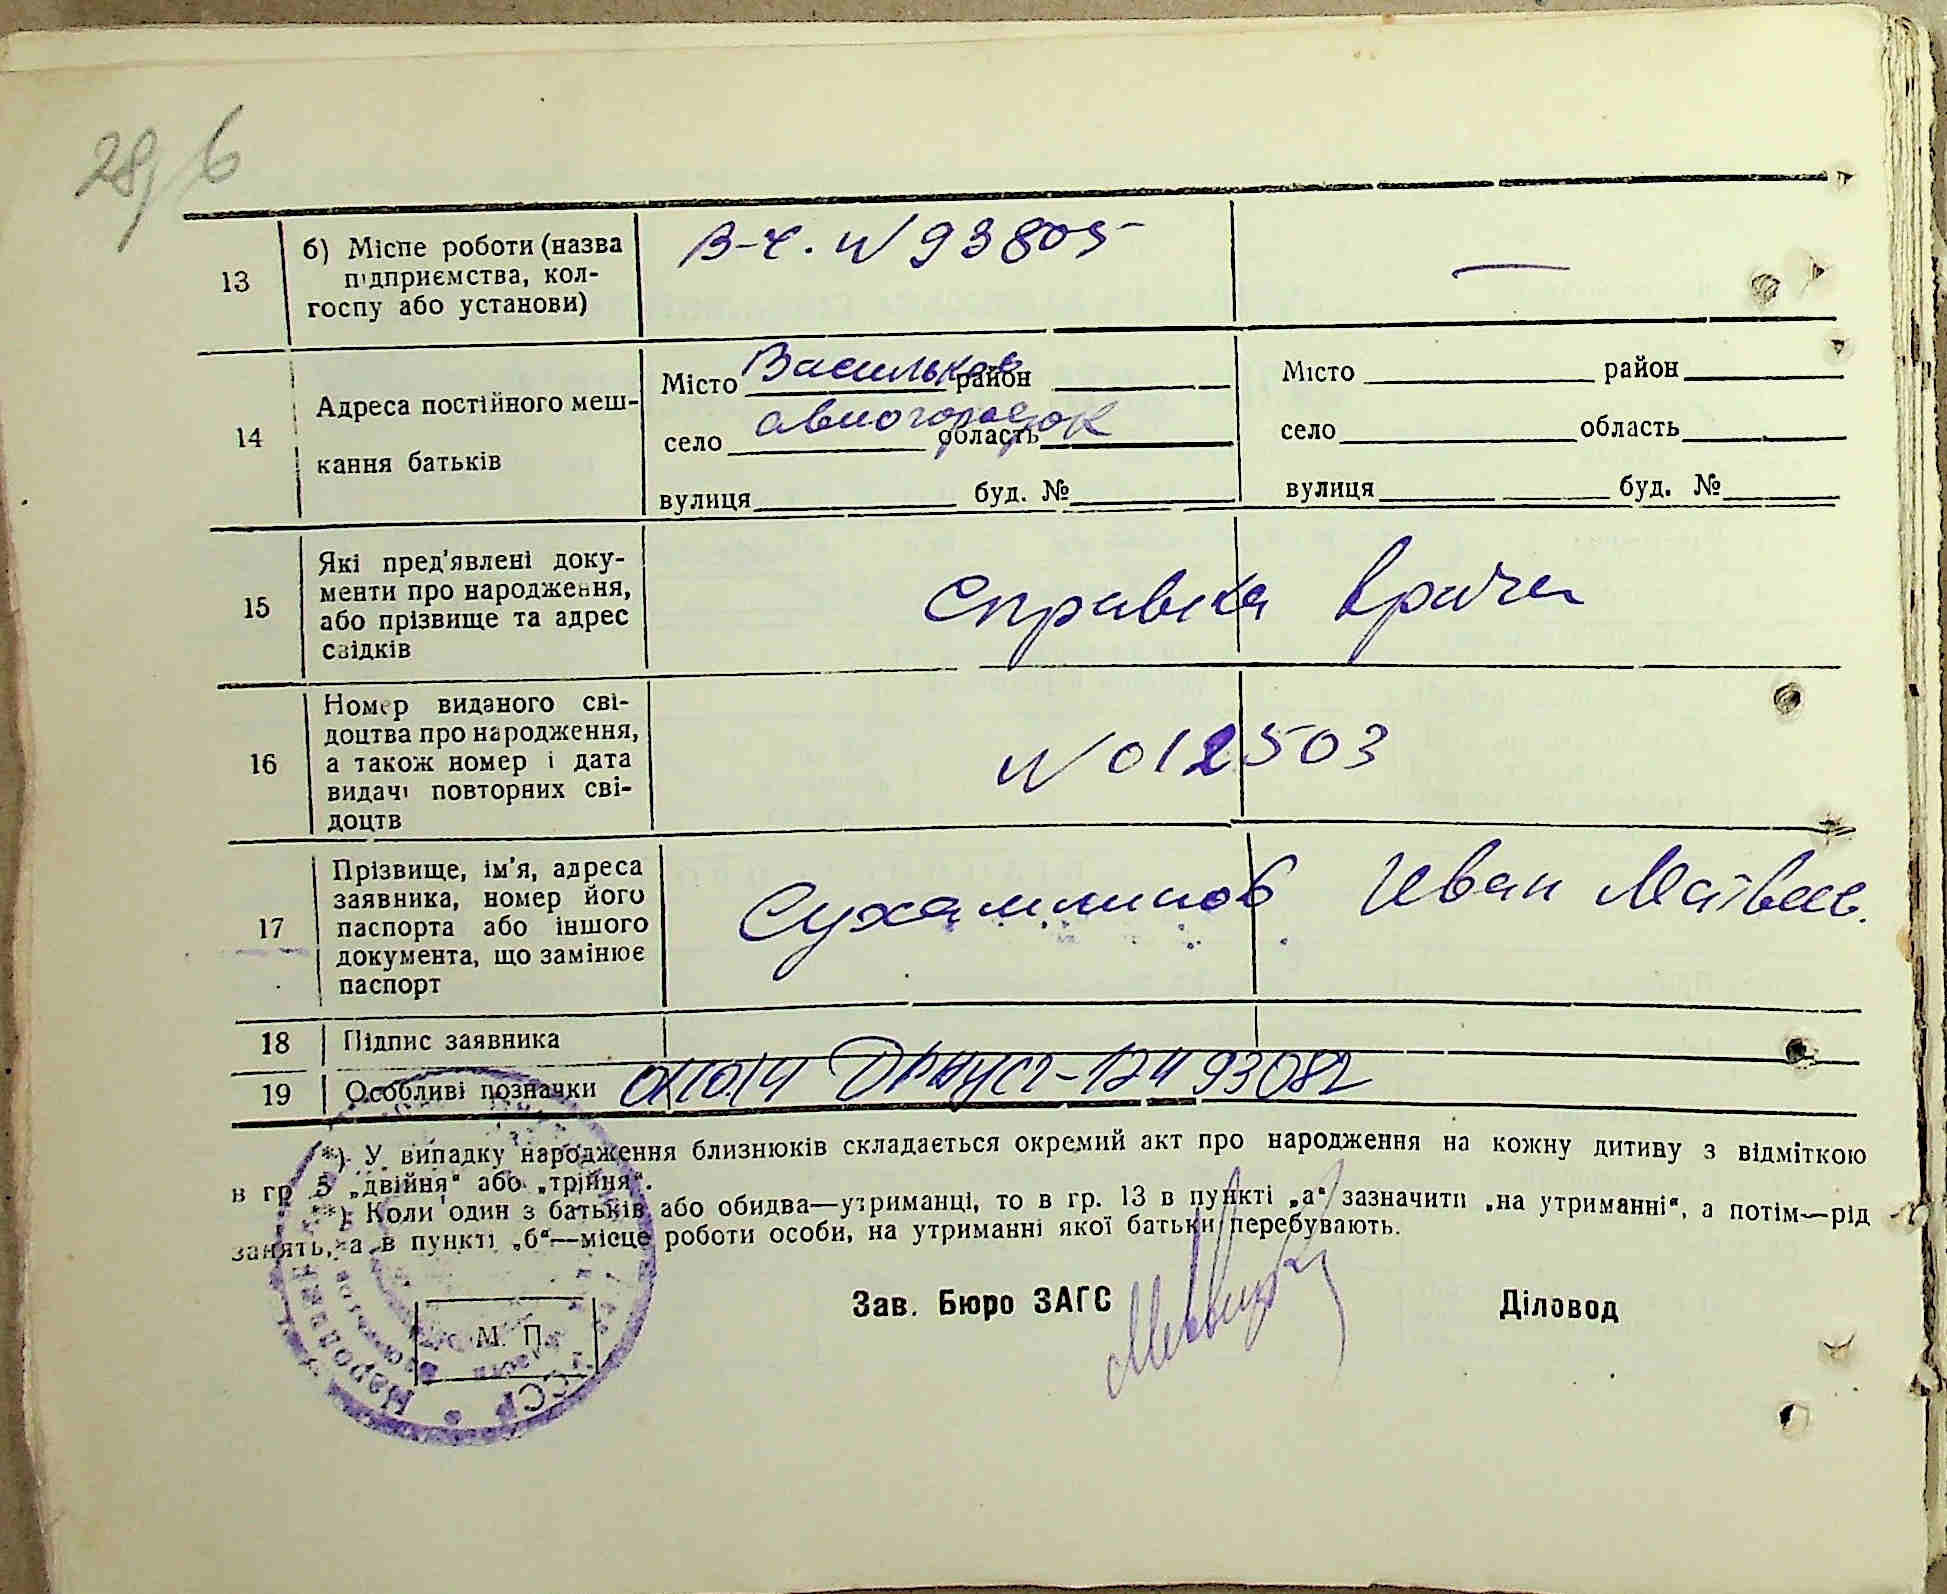 28/6
13
б) Місце роботи (назва
підприємства, кол-
госпу або установи)
В-ч. N 93805
—
14
Адреса постійного меш-
кання батьків
Місто Васильков район
село авиогородок область
вулиця буд. №
Місто район
село область
вулиця буд. №
15
Які пред'явлені доку-
менти про народження,
або прізвище та адрес
свідків
Справка врача
16
Номер виданого сві-
доцтва про народження,
а також номер і дата
видачі повторних сві-
доцтв
N 012503
17
Прізвище, ім'я, адреса
заявника, номер його
паспорта або іншого
документа, що замінює
паспорт
Сухамлинов Иван Матвеев.
18
Підпис заявника
19
Особливі позначки
93082
*) У випадку народження близнюків складається окремий акт про народження на кожну дитину з відміткою
в гр 5 „двійня“ або „трійня“.
**) Коли один з батьків або обидва—утриманці, то в гр. 13 в пункті „а“ зазначити „на утриманні“, а потім—рід
занять, а в пункті „б“—місце роботи особи, на утриманні якої батьки перебувають.
Зав. Бюро ЗАГС
Діловод
М. П.
УССР